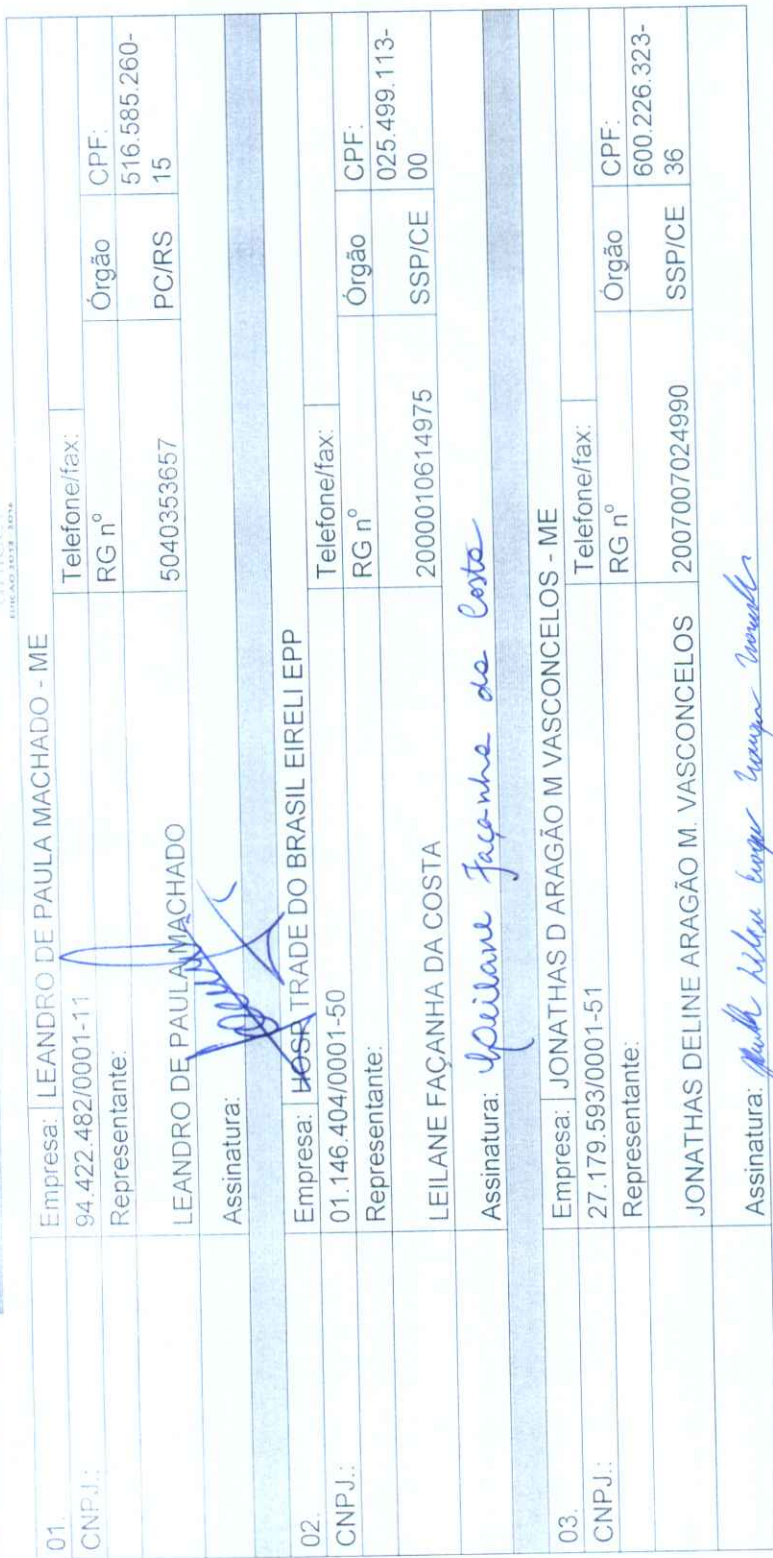 EDIÇÃO 2013 - 2016
01. Empresa: LEANDRO DE PAULA MACHADO - ME
CNPJ.: 94.422.482/0001-11 Telefone/fax:
Representante: RG nº Órgão CPF:
LEANDRO DE PAULA MACHADO 5040353657 PC/RS 516.585.260-
15
Assinatura:
02. Empresa: HOSP TRADE DO BRASIL EIRELI EPP
CNPJ.: 01.146.404/0001-50 Telefone/fax:
Representante: RG nº Órgão CPF:
LEILANE FAÇANHA DA COSTA 2000010614975 SSP/CE 025.499.113-
00
Assinatura: Leilane Façanha da Costa
03. Empresa: JONATHAS D ARAGÃO M VASCONCELOS - ME
CNPJ.: 27.179.593/0001-51 Telefone/fax:
Representante: RG nº Órgão CPF:
JONATHAS DELINE ARAGÃO M. VASCONCELOS 2007007024990 SSP/CE 600.226.323-
36
Assinatura: